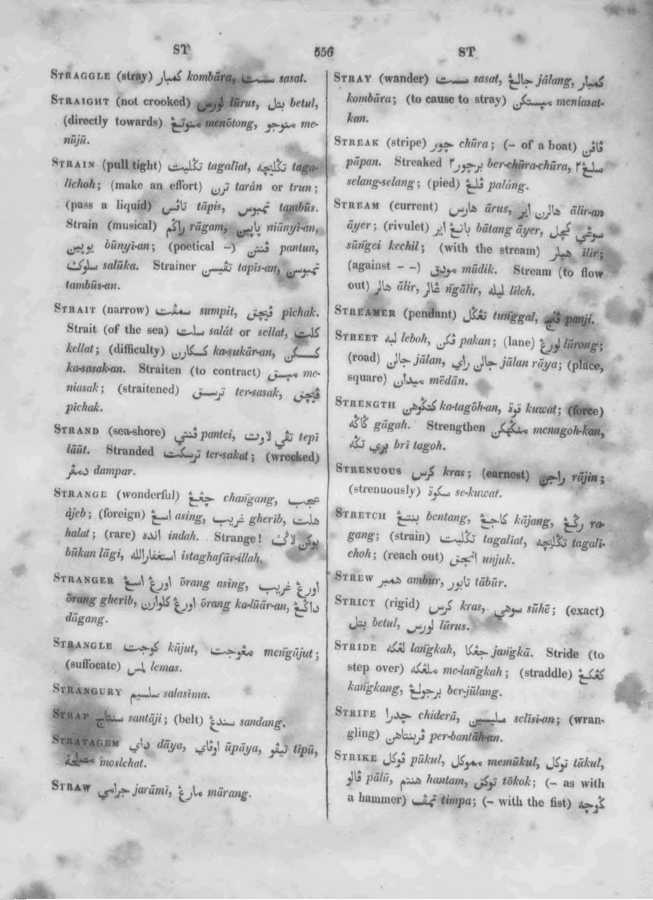 ST 556 ST
STRAGGLE (stray) کمبار kombāra, ست sasat.
STRAIGHT (not crooked) لورس lūrus, بتل betul,
(directly towards) منوتڠ menōtong, منوجو me-
nūjū.
STRAIN (pull tight) تڬليت tagalīat, تڬليچه taga-
līchoh; (make an effort) ترن tarān or trun;
(pass a liquid) تاڤس tāpis, تمبوس tambūs.
Strain (musical) راڬم rāgam, ڽاڽين niūnyī-an,
بوڽين būnyī-an; (poetical –) ڤنتن pantun,
سلوك salūka. Strainer تڤيسن tapis-an, تمبوسن
tambūs-an.
STRAIT (narrow) سمڤت sumpit, ڤيچق pīchak.
Strait (of the sea) سلت salát or sellat, كلت
kellat; (difficulty) کسکارن ka-sukār-an, کسسکن
ka-sasak-an. Straiten (to contract) مپسق me-
niasak; (straitened) ترسسق ter-sasak, ڤيچق
pīchak.
STRAND (sea-shore) ڤنتي pantei, تڤي لاوت tepī
lāūt. Stranded ترسکت ter-sakat; (wrecked)
دمڤر dampar.
STRANGE (wonderful) چڠڠ chañgang, عجيب
ājeb; (foreign) اسڠ asing, غريب gherīb, هلت
halat; (rare) انده indah. Strange! بوکن لاڬي
būkan lāgi, استغفرالله istaghafār-illah.
STRANGER اورڠ اسڠ ōrang asing, اورڠ غريب
ōrang gherīb, اورڠ کلوارن ōrang ka-lūār-an, داڬڠ
dāgang.
STRANGLE کوجت kūjut, مڠوجت meñgūjut;
(suffocate) لمس lemas.
STRANGURY سلسيم salasīma.
STRAP سنتاج santājī; (belt) سندڠ sandang.
STRATAGEM داي dāya, اوڤاي ūpāya, تيڤو tīpū,
مصلحة moslehat.
STRAW جرامي jarāmī, مارڠ mārang.
STRAY (wander) ست sasat, جالڠ jālang, کمبار
kombāra; (to cause to stray) مپستکن meniasat-
kan.
STREAK (stripe) چور chūra; (– of a boat) ڤاڤن
pāpan. Streaked برچور٢ ber-chūra-chūra, سلڠ٢
selang-selang; (pied) ڤلڠ palāng.
STREAM (current) هارس ārus, هالرن اير ālir-an
āyer; (rivulet) باتڠ اير bātang āyer, سوڠي کچل
sūñgei kechil; (with the stream) هيلر ilir;
(against – –) موديق mūdik. Stream (to flow
out) هالر ālir, ڠالر ñgālir, ليله līleh.
STREAMER (pendant) تڠڬل tuñggal, ڤنجي panjī.
STREET لبه leboh, ڤکن pakan; (lane) لورڠ lūrong;
(road) جالن jālan, جالن راي jālan rāya; (place,
square) ميدان mēdān.
STRENGTH کتڬوهن ka-tagōh-an, قوة kuwat; (force)
ڬاڬه gāgah. Strengthen منڬهکن menagoh-kan,
بري تڬه brī tagoh.
STRENUOUS کرس kras; (earnest) راجن rājin;
(strenuously) سقوة se-kuwat.
STRETCH بنتڠ bentang, کاجڠ kājang, رڬڠ ra-
gang; (strain) تڬليت tagalīat, تڬليچه tagalī-
choh; (reach out) انجق unjuk.
STREW همبر ambur, تابور tābūr.
STRICT (rigid) کرس kras, سوهي sūhē; (exact)
بتل betul, لورس lūrus.
STRIDE لڠکه lañgkah, جڠک jañgkā. Stride (to
step over) ملڠکه me-lañgkah; (straddle) کڠکڠ
kañgkang, برجولڠ ber-jūlang.
STRIFE چدرا chiderā, سليسين selīsi-an; (wran-
gling) ڤربنتاهن per-bantāh-an.
STRIKE ڤوکل pūkul, مموکل memūkul, توکل tūkul,
ڤالو pālū, هنتم hantam, توکق tōkok; (– as with
a hammer) تمڤ timpa; (– with the fist) ڬوچه